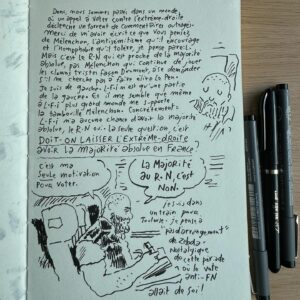 Donc, nous sommes passés dans un monde
où un appel à voter contre l'extrême-droite
déclenche un torrent de commentaires outragés.
"Merci de m'avoir écrit ce que vous pensiez
de Mélenchon. L'antisémitisme qu'il encourage
et l'homophobie qu'il tolère, je pense pareil.
Mais c'est le R-N qui est proche de la majorité
absolue, pas Mélenchon. Qui continue de jouer
les clowns tristes fasse
demander
s'il ne cherche pas à faire élire Le Pen.
Je suis de gauche. L-F-i n'est qu'une partie
de la gauche. Et il me semble que même
à L-F-i plus grand monde ne supporte
la tambouille Mélenchon. Concrètement
L-F-i n'a aucune chance d'avoir la majorité
absolue, le R-N oui. La seule question, c'est
DOIT-ON LAISSER L'EXTRÊME-DROITE
AVOIR LA MAJORITÉ ABSOLUE EN FRANCE
C'est ma
seule motivation
pour voter.
La Majorité
au R-N, c'est
NON.
je suis dans
un train pour
Toulouse. Je pense à
nostalgique
de cette période
où le vote
anti-FN
allait de soi